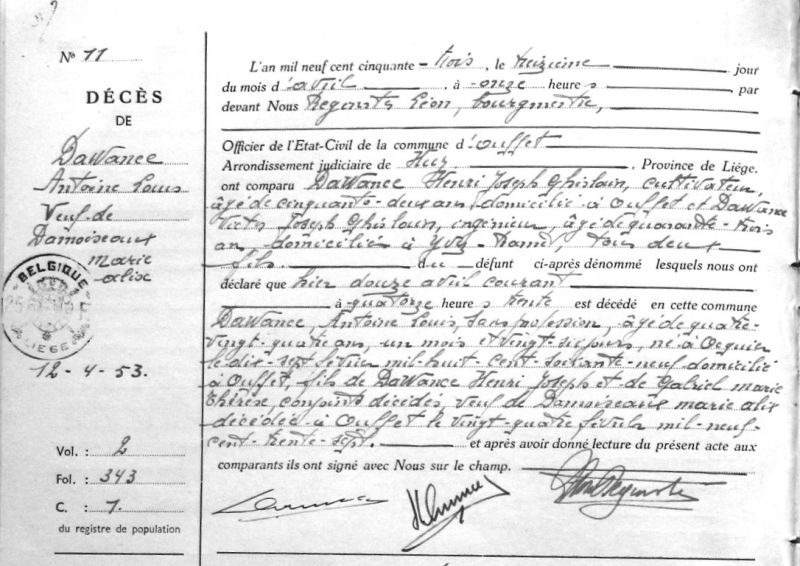 N° 11
DÉCÈS
DE
Dawance
Antoine Louis
Veuf de
Damoiseaux
Marie
Alix
BELGIQUE
LIEGE
12-4-53.
Vol. : 2
Fol. : 343
C. : 7.
du registre de population
L'an mil neuf cent cinquante - trois, le treizième jour
du mois d'avril, à onze heures par
devant Nous Regnister Léon, bourgmestre,
Officier de l'Etat-Civil de la commune d'Ouffet
Arrondissement judiciaire de Huy, Province de Liége,
ont comparu Dawance Henri Joseph Ghislain, cultivateur,
âgé de cinquante-deux ans domicilié à Ouffet et Dawance
Victor Joseph Ghislain, ingénieur, âgé de quarante-trois
ans, domicilié à Yvoz-Ramet, tous deux
fils du défunt ci-après dénommé lesquels nous ont
déclaré que hier douze avril courant
à quatorze heures trente est décédé en cette commune
Dawance, Antoine Louis, sans profession, âgé de quatre-
vingt-quatre ans, un mois et vingt-six jours, né à Ocquier
le dix-sept février mil-huit-cent-soixante-neuf domicilié
à Ouffet, fils de Dawance Henri Joseph et de Gabriel Marie
Thérèse, conjoints décédés, veuf de Damoiseaux Marie Alix
décédée à Ouffet le vingt-quatre février mil-neuf-
cent-trente-sept. et après avoir donné lecture du présent acte aux
comparants ils ont signé avec Nous sur le champ.